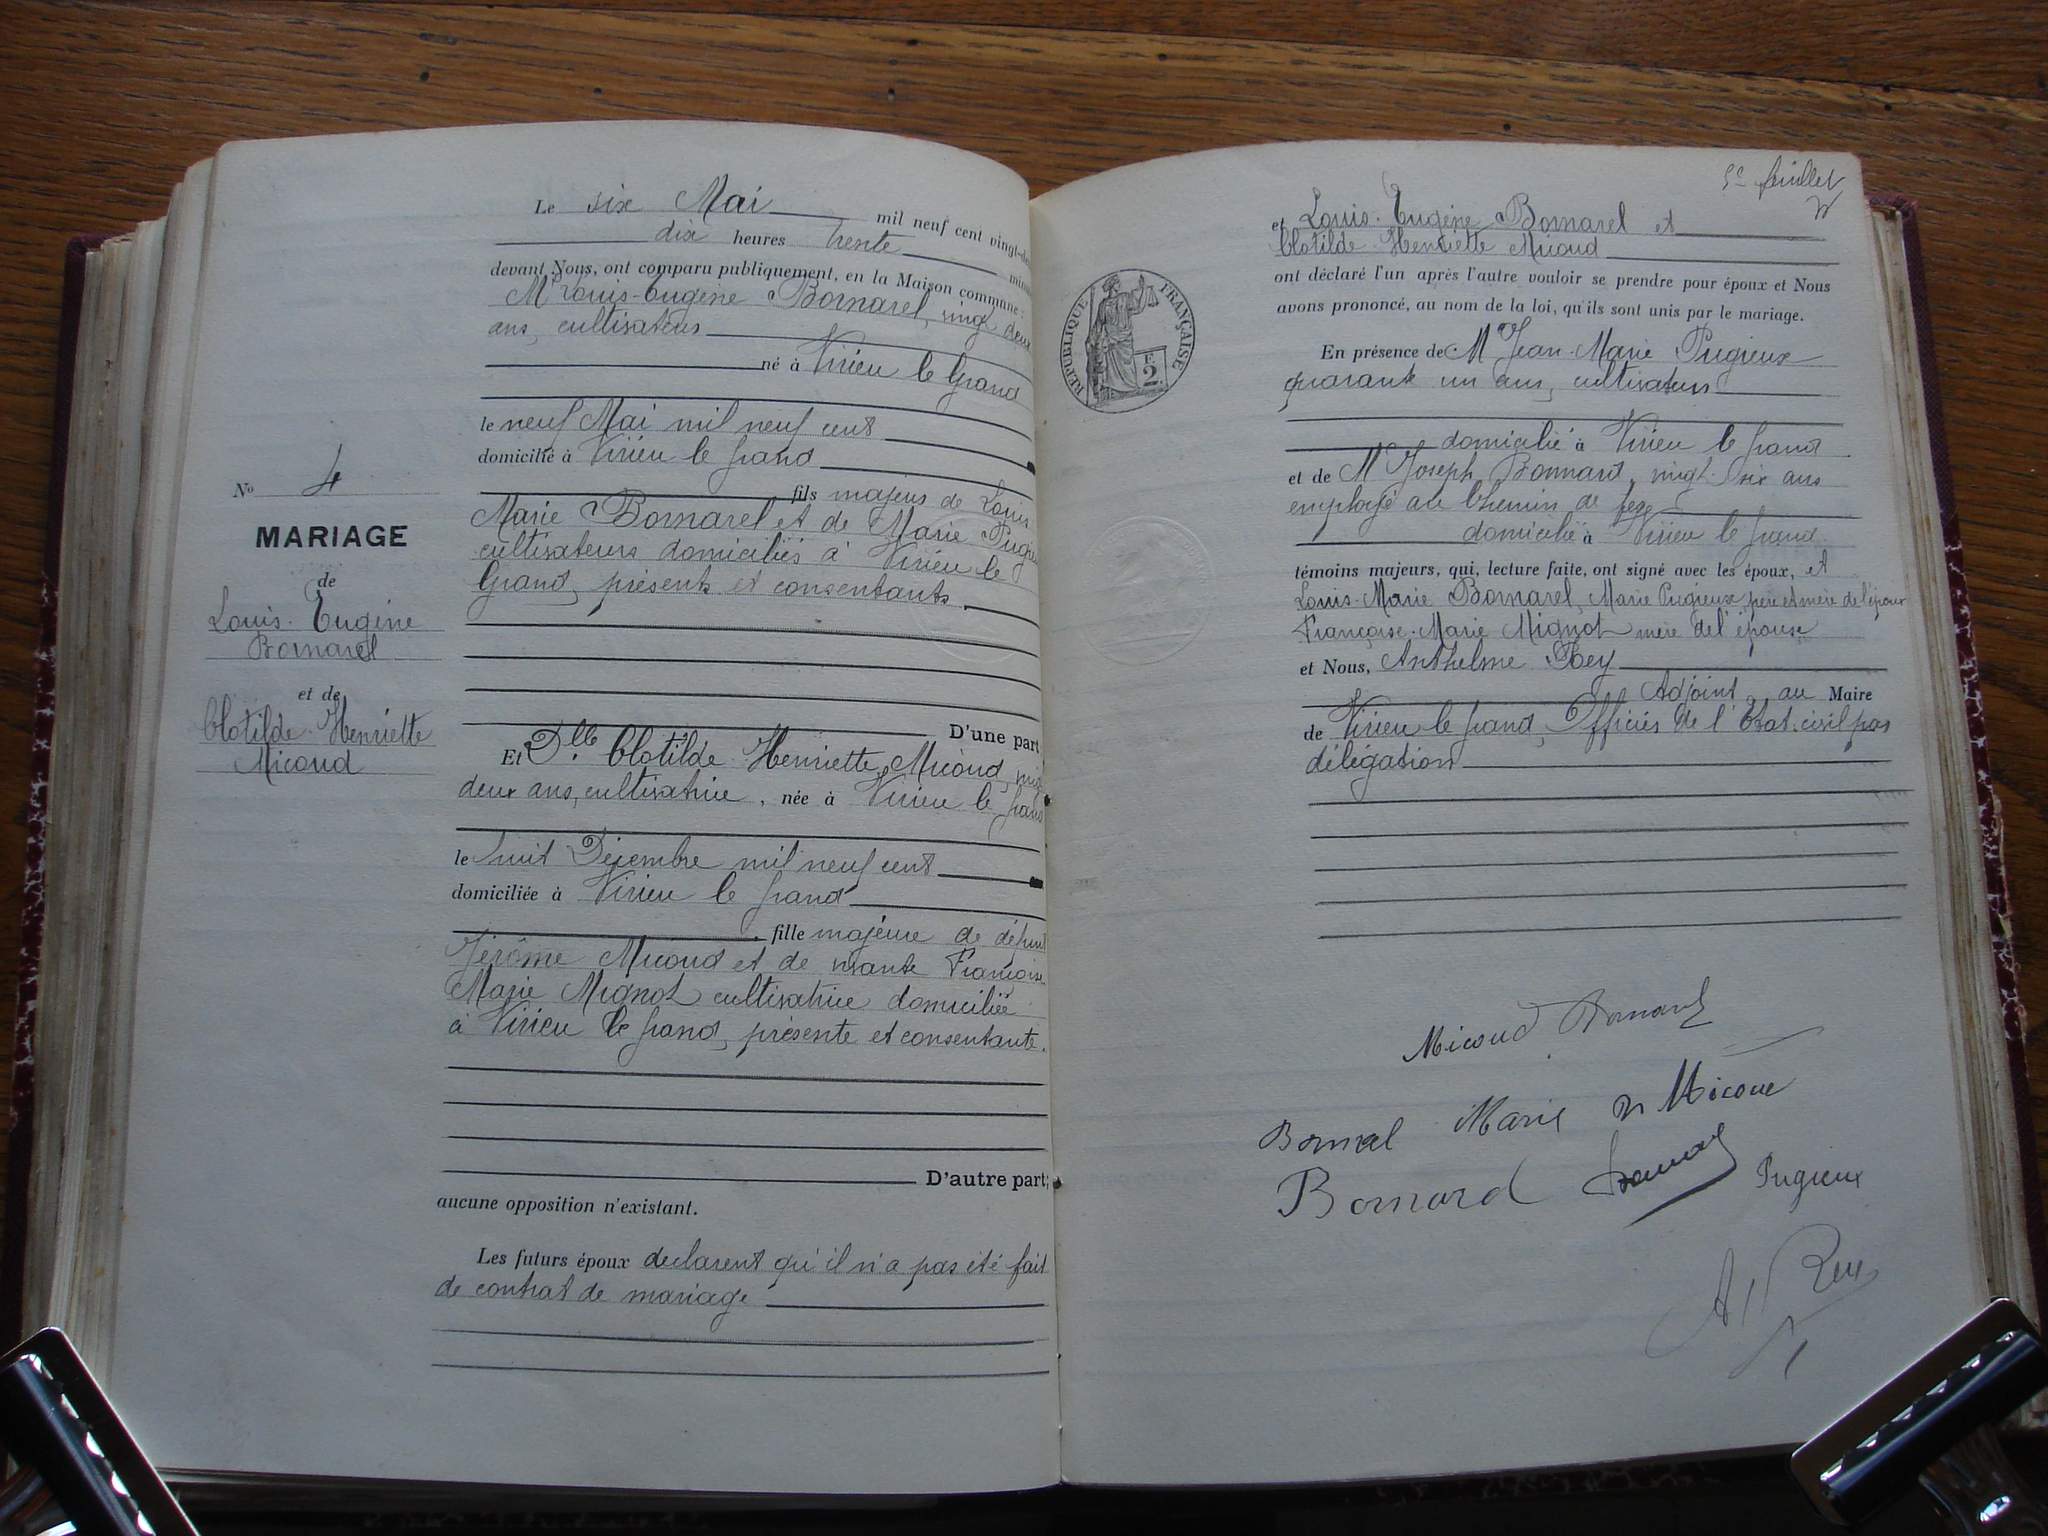 Le six Mai mil neuf cent vingt-de
dix heures trente minu
devant Nous, ont comparu publiquement, en la Maison commune :
Mr Louis-Eugène Bornarel, vingt deux
ans, cultivateur
né à Virieu le Grand
le neuf Mai mil neuf cent
domicilié à Virieu le grand
fils majeur de Louis
Marie Bornarel et de Marie Pugieux
cultivateurs domiciliés à Virieu le
Grand, présents et consentants.
D'une part
No 4
MARIAGE
de
Louis-Eugène
Bornarel
et de
Clotilde Henriette
Micoud
Et Dlle Clotilde Henriette Micoud, vingt
deux ans, cultivatrice, née à Virieu le grand
le huit Décembre mil neuf cent
domiciliée à Virieu le grand
fille majeure de défunt
Jérôme Micoud et de vivante Françoise
Marie Mignot cultivatrice domiciliée
à Virieu le grand, présente et consentante.
D'autre part;
aucune opposition n'existant.
Les futurs époux déclarent qu'il n'a pas été fait
de contrat de mariage
feuillet
et Louis-Eugène Bornarel et
Clotilde Henriette Micoud
ont déclaré l'un après l'autre vouloir se prendre pour époux et Nous
avons prononcé, au nom de la loi, qu'ils sont unis par le mariage.
RÉPUBLIQUE FRANÇAISE
F.
2.
En présence de Mr Jean-Marie Pugieux
quarante un ans, cultivateur
domicilié à Virieu le grand
et de Mr Joseph Bonnard, vingt-six ans
employé au Chemin de fer
domicilié à Virieu le grand
témoins majeurs, qui, lecture faite, ont signé avec les époux, et
Louis-Marie Bornarel, Marie Pugieux père et mère de l'époux
Françoise-Marie Mignot mère de l'épouse
et Nous, Anthelme Rey
Adjoint au Maire
de Virieu le grand, Officier de l'Etat-civil par
délégation
Micoud
Marie Micoud
Bornard Pugieux
A Rey